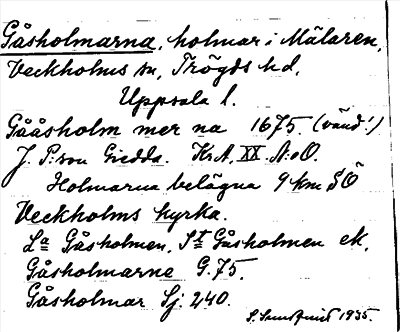 Gåsholmarna, holmar i Mälaren,
Veckholms sn, Trögds hd,
Uppsala l.
Gååsholm mer na 1675. (vänd!)
J. P:son Giedda. KrA, XX. A:o O.
Holmarna belägna 9 km SÖ
Veckholms kyrka.
La Gåsholmen, St Gåsholmen ek.
Gåsholmarne G. 75.
Gåsholmar Sj. 240.
1935.